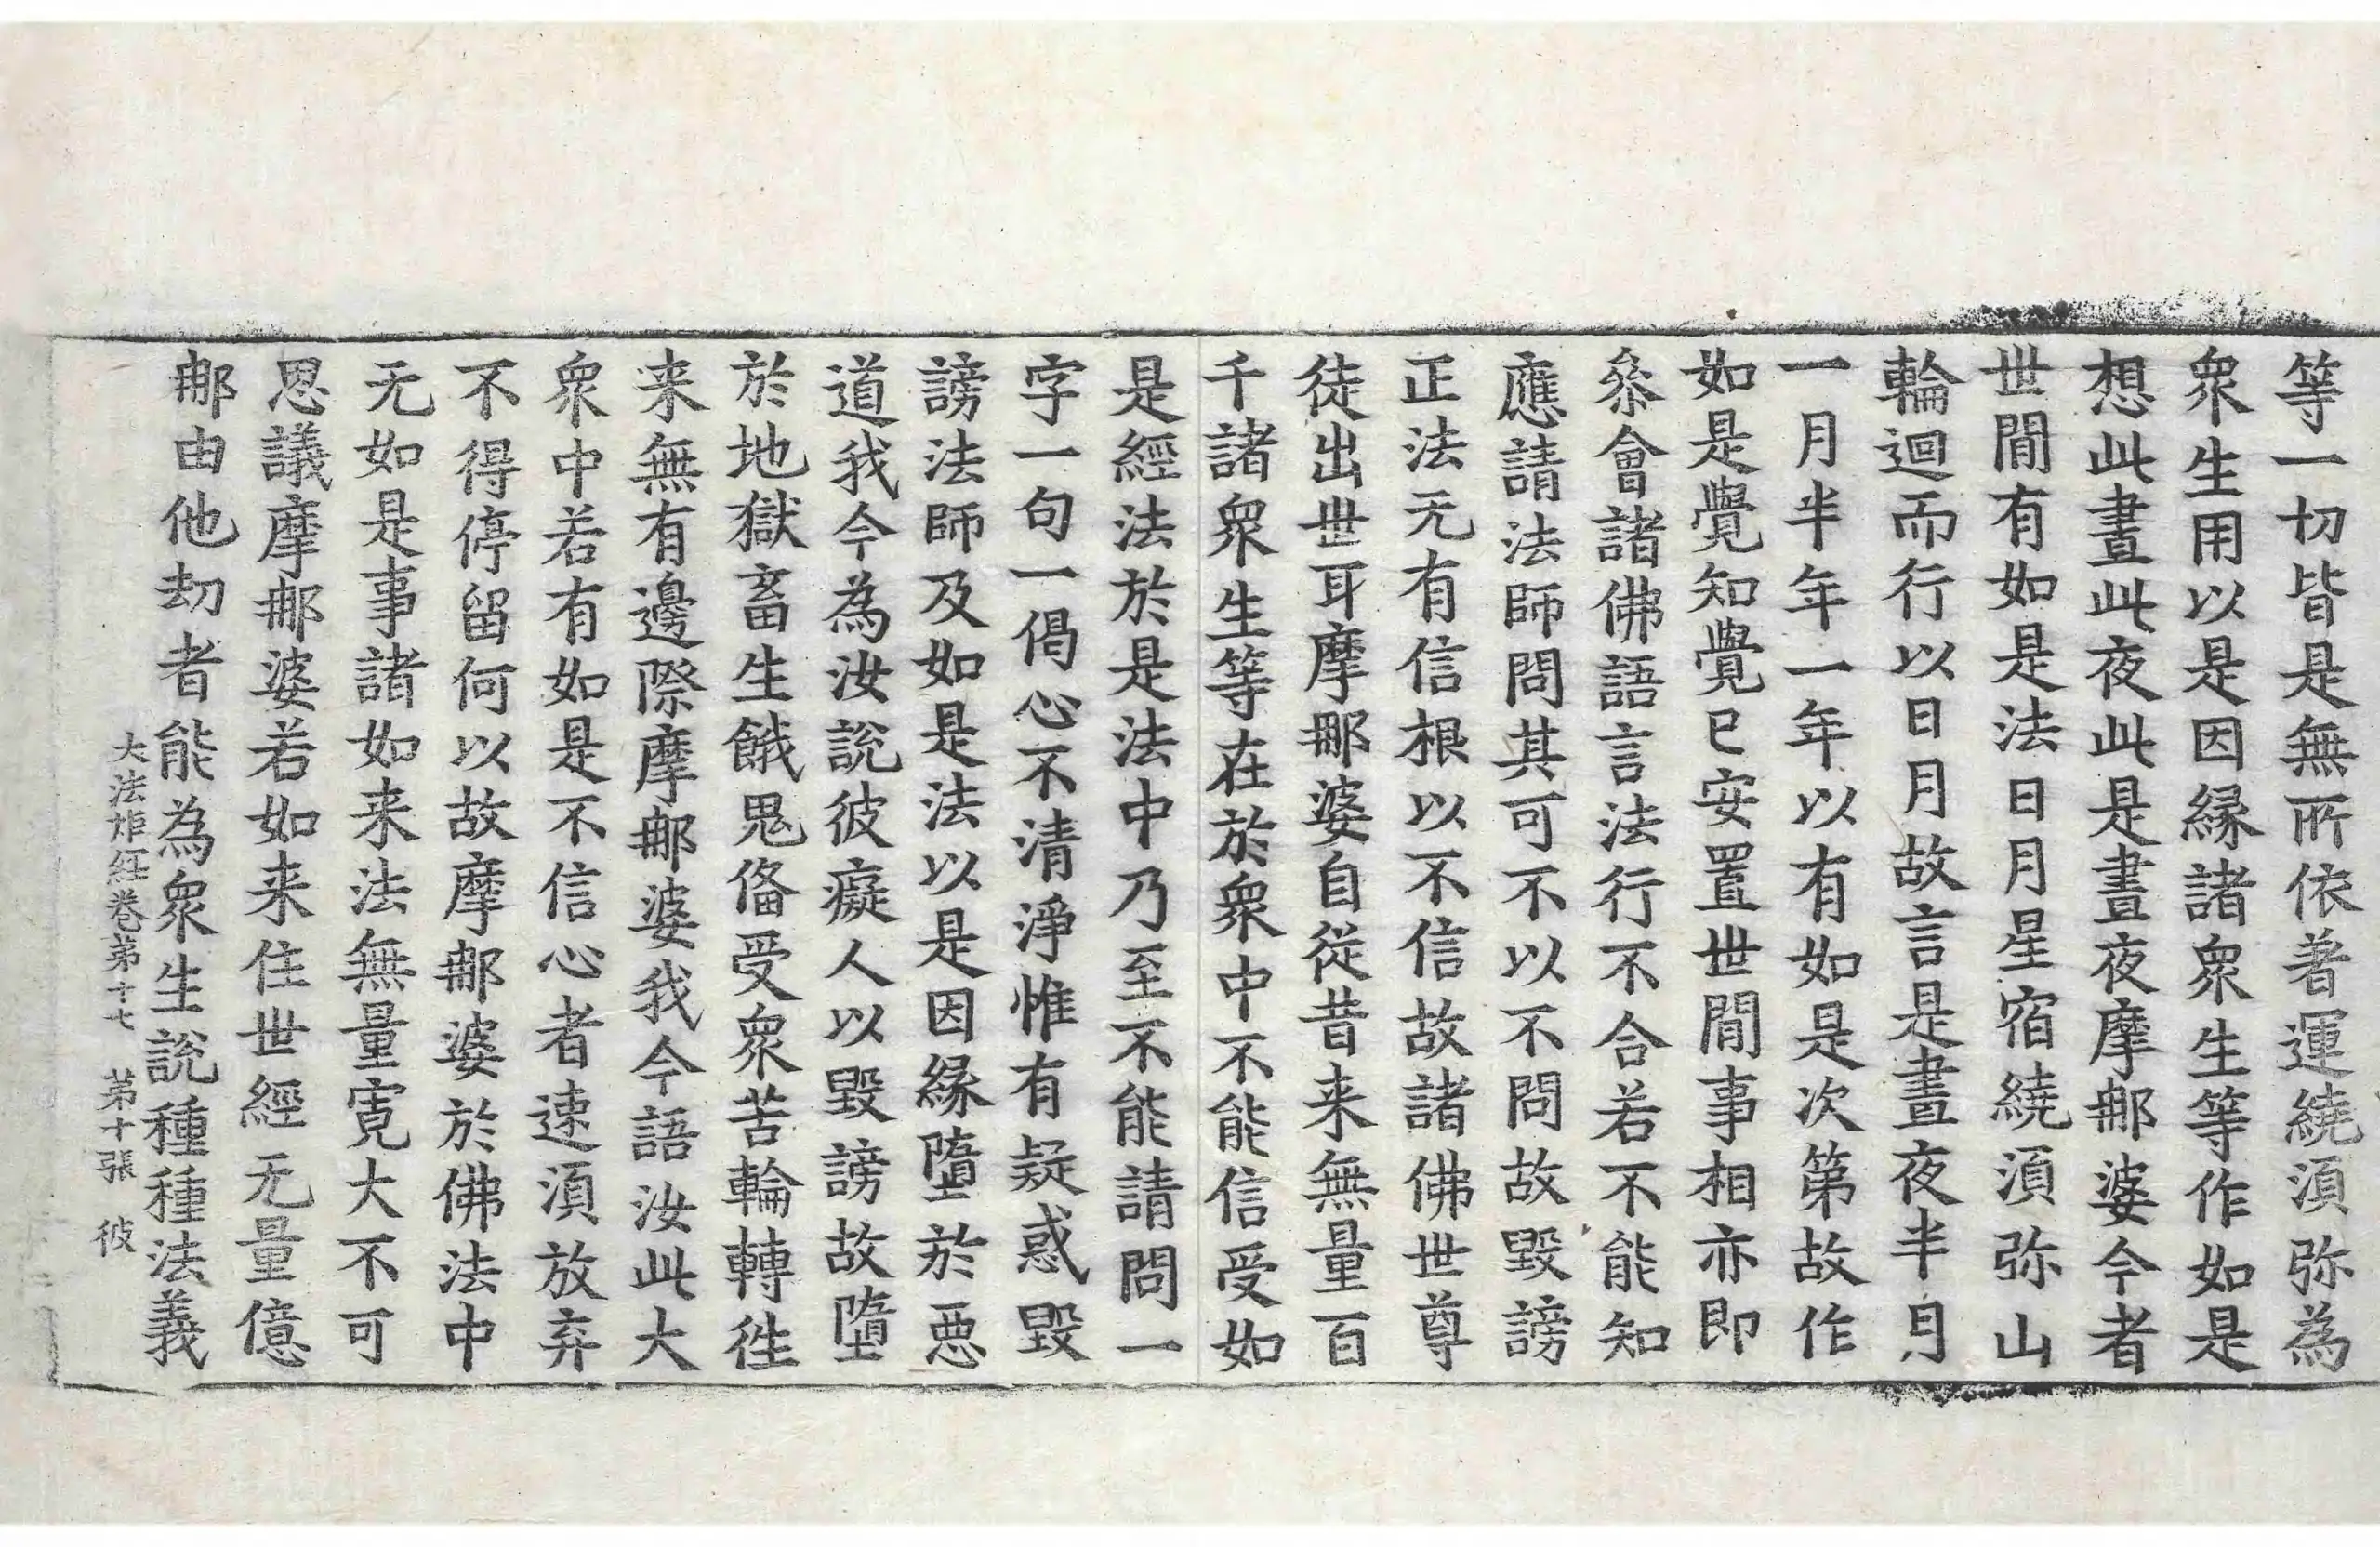 等一切皆是無所依著運繞湏弥為
衆生用以是因縁諸衆生等作如是
想此晝此夜此是晝夜摩䣯婆今者
世間有如是法日月星宿繞湏弥山
輪迴而行以日月故言是晝夜半月
一月半年一年以有如是次第故作
如是覺知覺已安置世間事相亦即
叅會諸佛語言法行不合若不能知
應請法師問其可不以不問故毀謗
正法无有信根以不信故諸佛世尊
徒出世耳摩䣯婆自從昔来無量百
千諸衆生等在於衆中不能信受如
是經法於是法中乃至不能請問一
字一句一偈心不清淨惟有疑惑毀
謗法師及如是法以是因縁墮於惡
道我今為汝說彼癡人以毀謗故墮
於地獄畜生餓鬼俻受衆苦輪轉徃
来無有邊際摩䣯婆我今語汝此大
衆中若有如是不信心者速湏放弃
不得停留何以故摩䣯婆於佛法中
无如是事諸如来法無量寛大不可
思議摩䣯婆若如来住世經无量億
䣯由他劫者能為衆生說種種法義
大法炬経卷第十七 第十張 彼